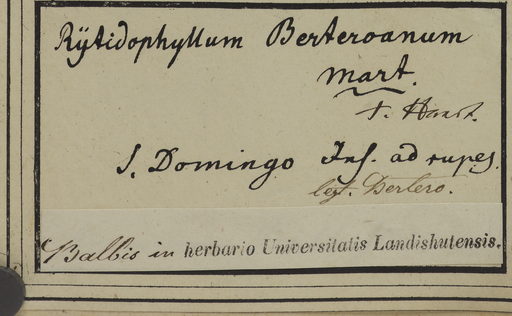 Rÿtidophyllum Berteroanum
Mart.
t. Hanst.
S. Domingo Ins. ad rupes.
legt. Bertero.
Balbis in herbario Universitatis Landishutensis.